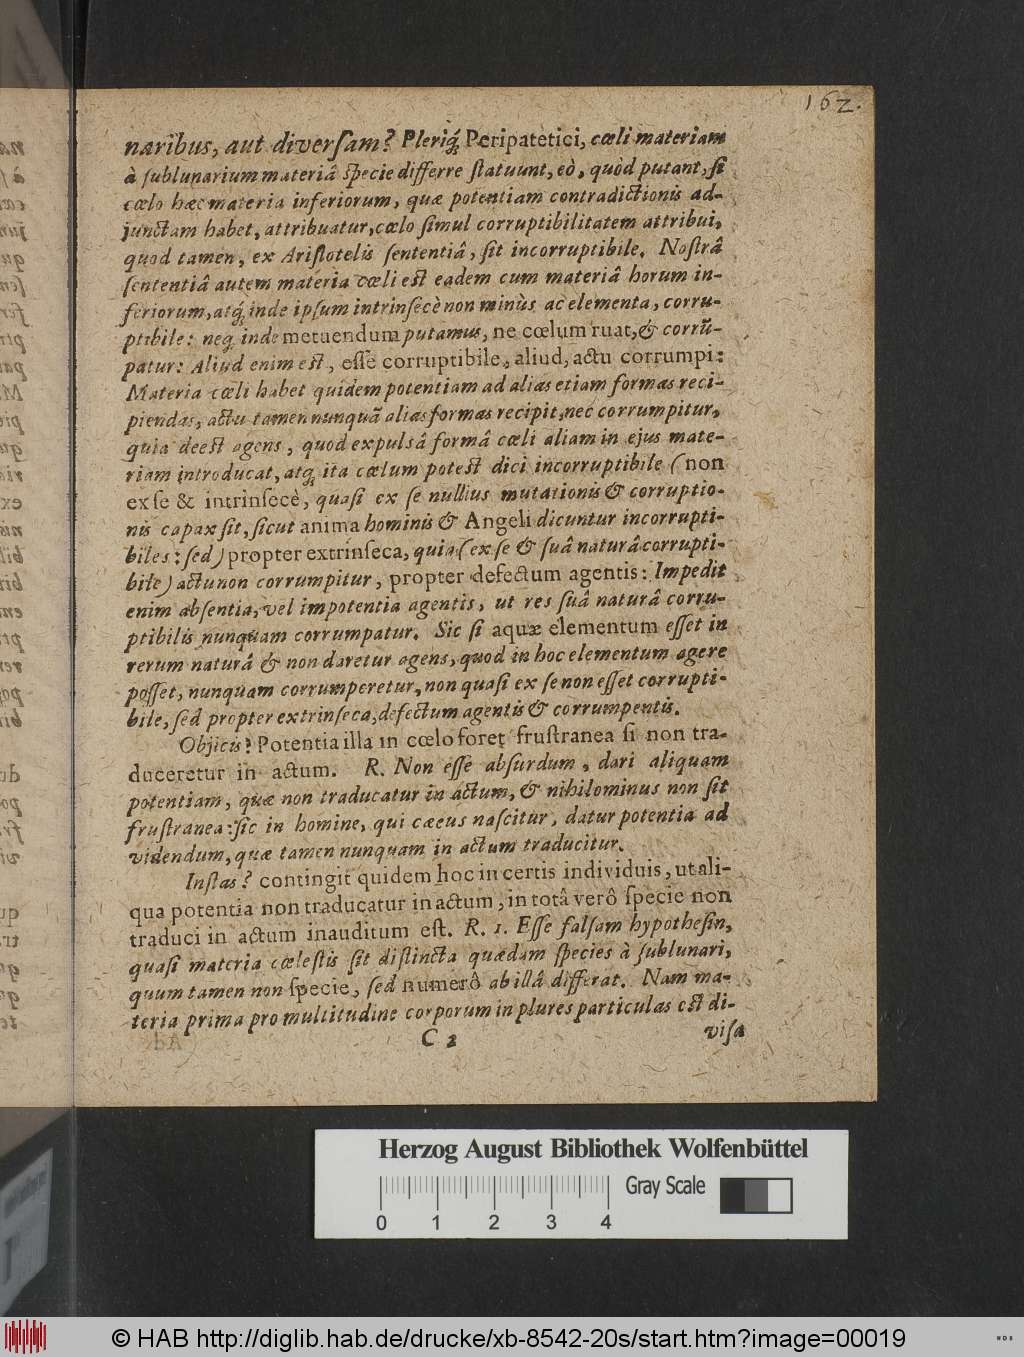 162.
naribus, aut diverſam? Pleriq́; Peripatetici, cœli materiam
à ſublunarium materiâ ſpecie differre ſtatuunt, eò, quòd putant, ſi
cœlo hæc materia inferiorum, quæ potentiam contradictionis ad-
junctam habet, attribuatur, cœlo ſimul corruptibilitatem attribui,
quod tamen, ex Ariſtotelis ſententiâ, ſit incorruptibile. Noſtrâ
ſententiâ autem materia cœli eſt eadem cum materiâ horum in-
feriorum, atq́; inde ipſum intrinſecè non minùs ac elementa, corru-
ptibile: neq́; inde metuendum putamus, ne cœlum ruat, & corrū-
patur: Aliud enim eſt, eſſe corruptibile, aliud, actu corrumpi:
Materia cœli habet quidem potentiam ad alias etiam formas reci-
piendas, actu tamen nunquā alias formas recipit, nec corrumpitur,
quia deeſt agens, quod expulsâ formâ cœli aliam in ejus mate-
riam introducat, atq́; ita cœlum poteſt dici incorruptibile (non
ex ſe & intrinſecè, quaſi ex ſe nullius mutationis & corruptio-
nis capax ſit, ſicut anima hominis & Angeli dicuntur incorrupti-
biles: ſed) propter extrinſeca, quia (ex ſe & ſuâ naturâ corrupti-
bile) actu non corrumpitur, propter defectum agentis: Impedit
enim abſentia, vel impotentia agentis, ut res ſuâ naturâ corru-
ptibilis nunquam corrumpatur. Sic ſi aquæ elementum eſſet in
rerum naturâ & non daretur agens, quod in hoc elementum agere
poſſet, nunquam corrumperetur, non quaſi ex ſe non eſſet corrupti-
bile, ſed propter extrinſeca, defectum agentis & corrumpentis.
Objicis? Potentia illa in cœlo foret fruſtranea ſi non tra-
duceretur in actum. R. Non eſſe abſurdum, dari aliquam
potentiam, quæ non traducatur in actum, & nihilominus non ſit
fruſtranea: ſic in homine, qui cæcus naſcitur, datur potentia ad
videndum, quæ tamen nunquam in actum traducitur.
Inſtas? contingit quidem hoc in certis individuis, ut ali-
qua potentia non traducatur in actum, in totâ verò ſpecie non
traduci in actum inauditum eſt. R. 1. Eſſe falſam hypotheſin,
quaſi materia cœleſtis ſit diſtincta quædam ſpecies à ſublunari,
quum tamen non ſpecie, ſed numerô ab illâ differat. Nam ma-
teria prima pro multitudine corporum in plures particulas eſt di-
C 2
viſa
Herzog August Bibliothek Wolfenbüttel
Gray Scale
0 1 2 3 4
© HAB http://diglib.hab.de/drucke/xb-8542-20s/start.htm?image=00019